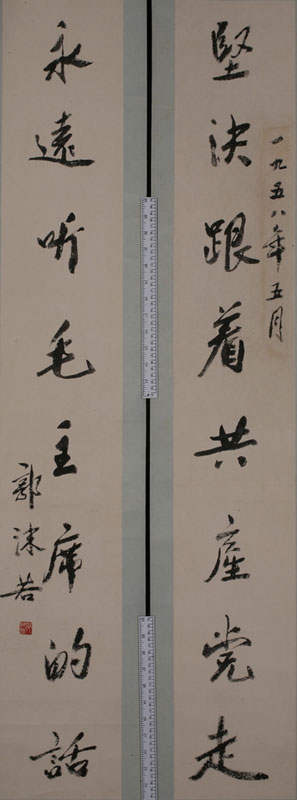 一九五八年五月
堅决跟着共產党走
永遠听毛主席的話
郭沫若